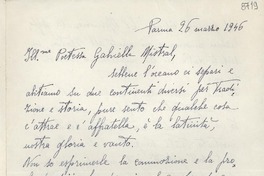 8719
Parma 26 marzo 1946
Ill.ma Poetessa Gabriella Mistral,
sebbene l'oceano ci separi e
abitiamo su due continenti diversi per tradi-
zione e storia, pure sento che qualche cosa
c'attrae e s'affratella, è la latinità,
nostra gloria e vanto.
Non so esprimerle la commozione e la pro-